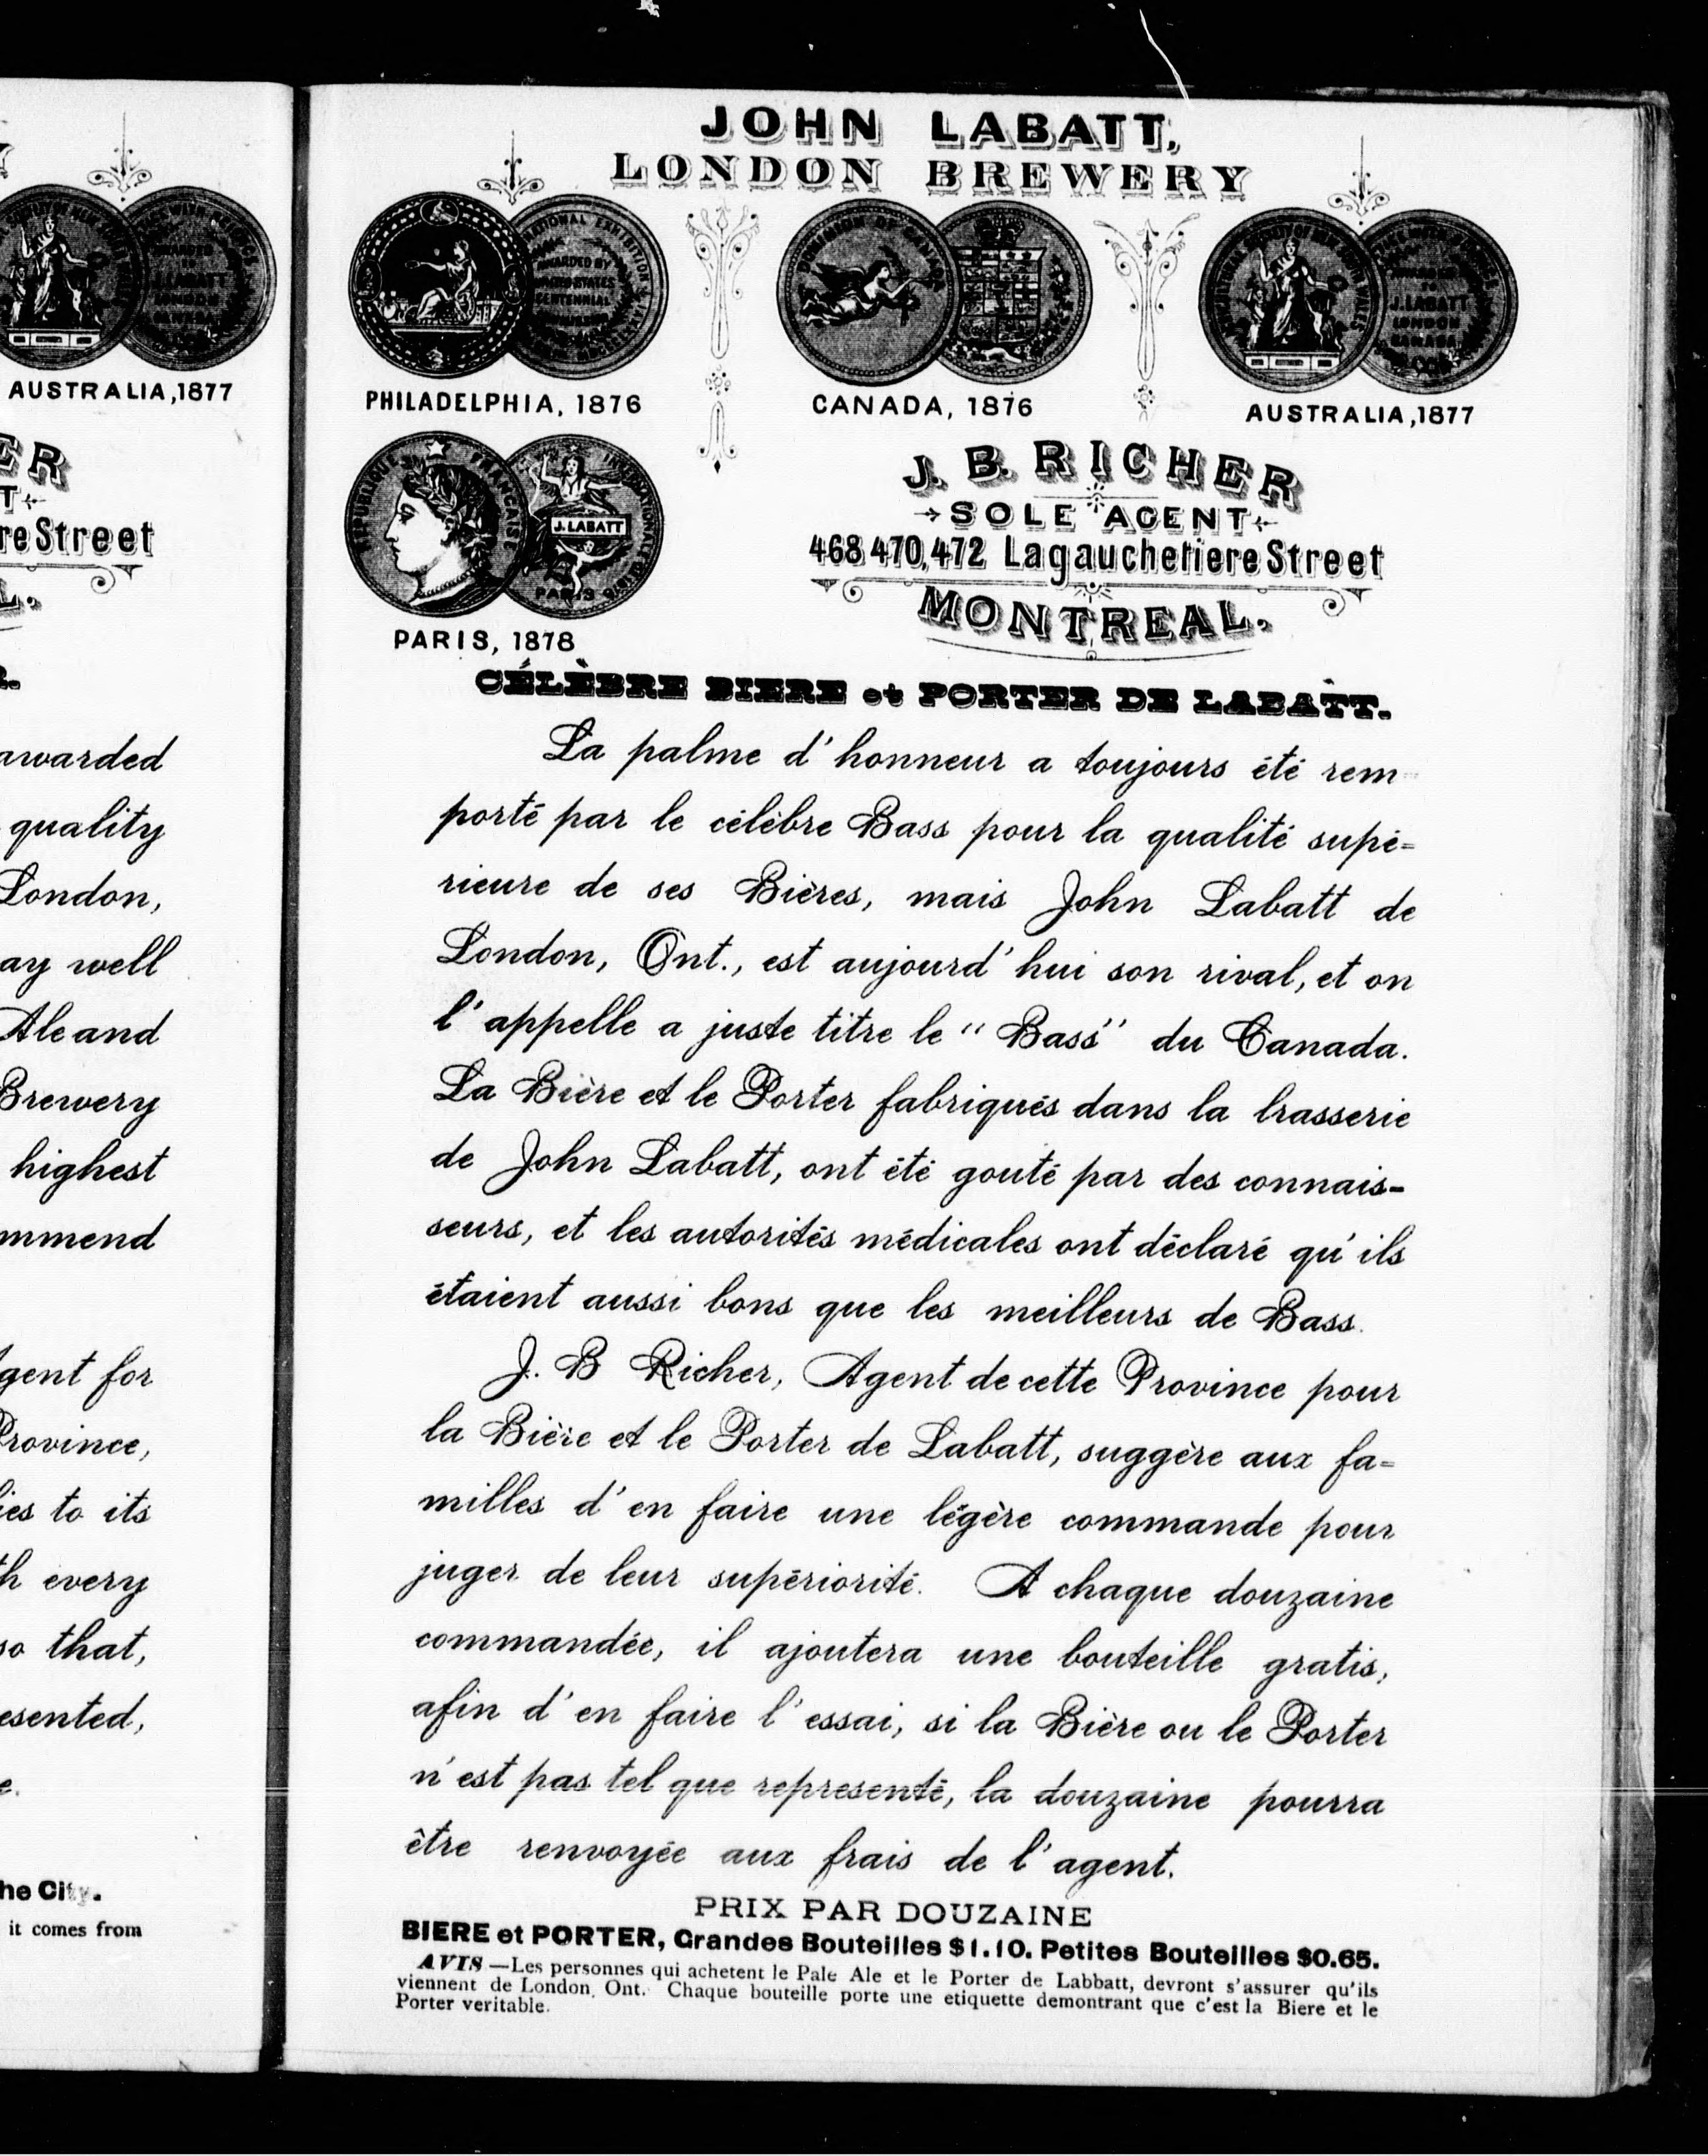 AUSTRALIA, 1877
ER
T
reStreet
L.
awarded
quality
London,
ay well
Ale and
Brewery
highest
mmend
gent for
Province,
ies to its
h every
so that,
esented,
e.
he City.
it comes from
JOHN LABATT,
LONDON BREWERY
NATIONAL EXHIBITION
AWARDED BY
UNITED STATES
CENTENNIAL
DOMINION OF CANADA
J. LABATT
LONDON
CANADA
PHILADELPHIA, 1876
CANADA, 1876
AUSTRALIA, 1877
REPUBLIQUE FRANÇAISE
J. LABATT
PARIS
PARIS, 1878
J. B. RICHER
SOLE AGENT
468 470, 472 Lagauchetiere Street
MONTREAL.
CÉLÈBRE BIERE et PORTER DE LABATT.
La palme d'honneur a toujours été rem
porté par le célèbre Bass pour la qualité supé=
rieure de ses Bières, mais John Labatt de
London, Ont., est aujourd'hui son rival, et on
l'appelle a juste titre le "Bass" du Canada.
La Bière et le Porter fabriqués dans la brasserie
de John Labatt, ont été gouté par des connais-
seurs, et les autorités médicales ont déclaré qu'ils
étaient aussi bons que les meilleurs de Bass.
J. B Richer, Agent de cette Province pour
la Bière et le Porter de Labatt, suggère aux fa=
milles d'en faire une légère commande pour
juger de leur supériorité. A chaque douzaine
commandée, il ajoutera une bouteille gratis,
afin d'en faire l'essai, si la Bière ou le Porter
n'est pas tel que representé, la douzaine pourra
être renvoyée aux frais de l'agent.
PRIX PAR DOUZAINE
BIERE et PORTER, Grandes Bouteilles $1.10. Petites Bouteilles $0.65.
AVIS—Les personnes qui achetent le Pale Ale et le Porter de Labbatt, devront s'assurer qu'ils
viennent de London, Ont. Chaque bouteille porte une etiquette demontrant que c'est la Biere et le
Porter veritable.